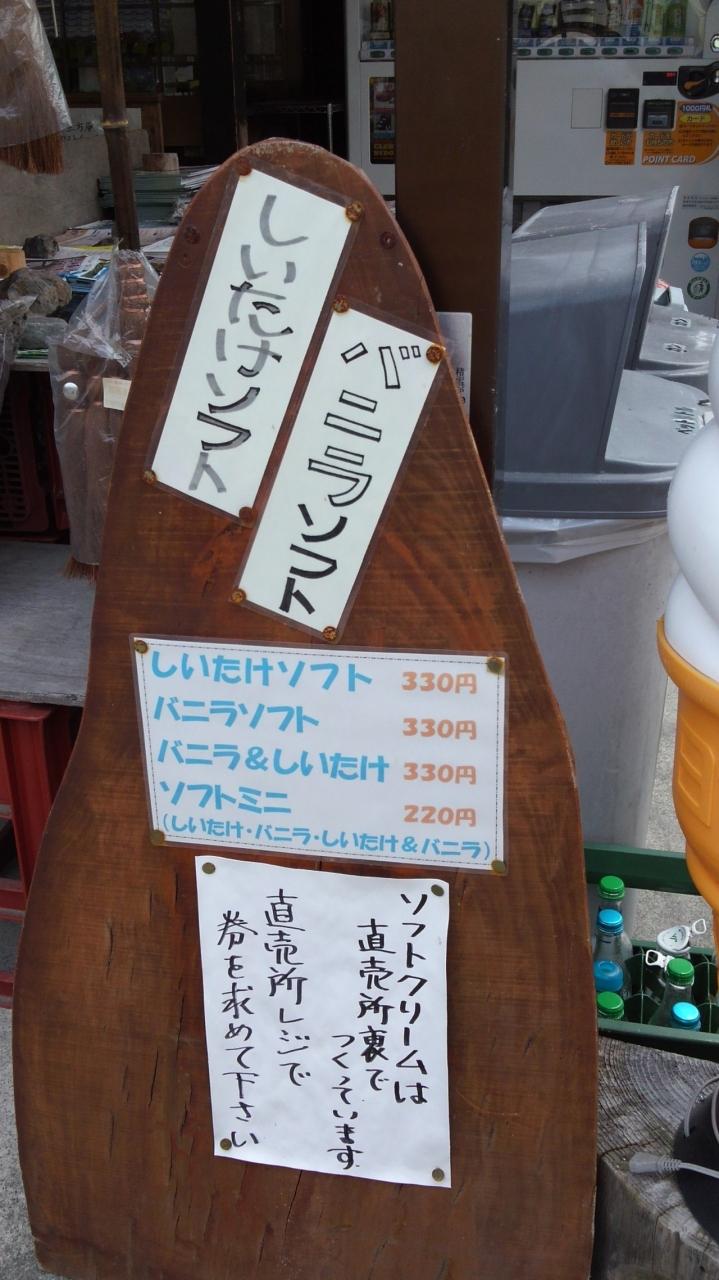 しいたけソフト
バニラソフト
しいたけソフト 330円
バニラソフト 330円
バニラ&しいたけ 330円
ソフトミニ 220円
(しいたけ・バニラ・しいたけ&バニラ)
ソフトクリームは
直売所裏で
つくっています
直売所レジで
券を求めて下さい
1000円札
カード
POINT CARD